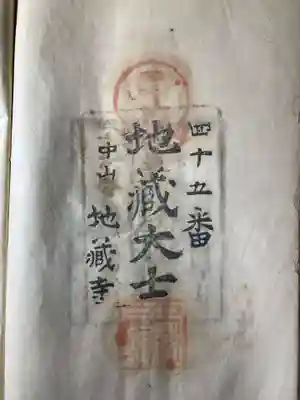 四十五番
地藏大士
中山 地藏寺